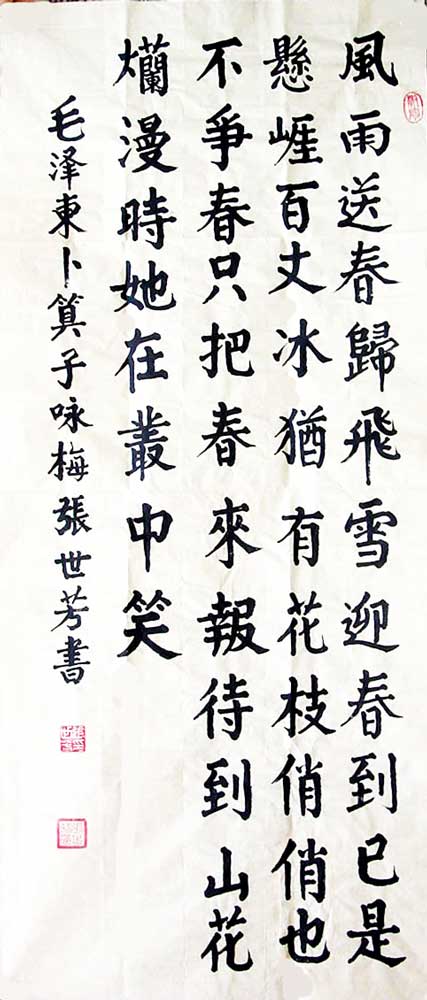 風雨送春歸飛雪迎春到已是
懸崕百丈冰猶有花枝俏俏也
不爭春只把春來報待到山花
爛漫時她在叢中笑
毛泽東卜算子咏梅張世芳書